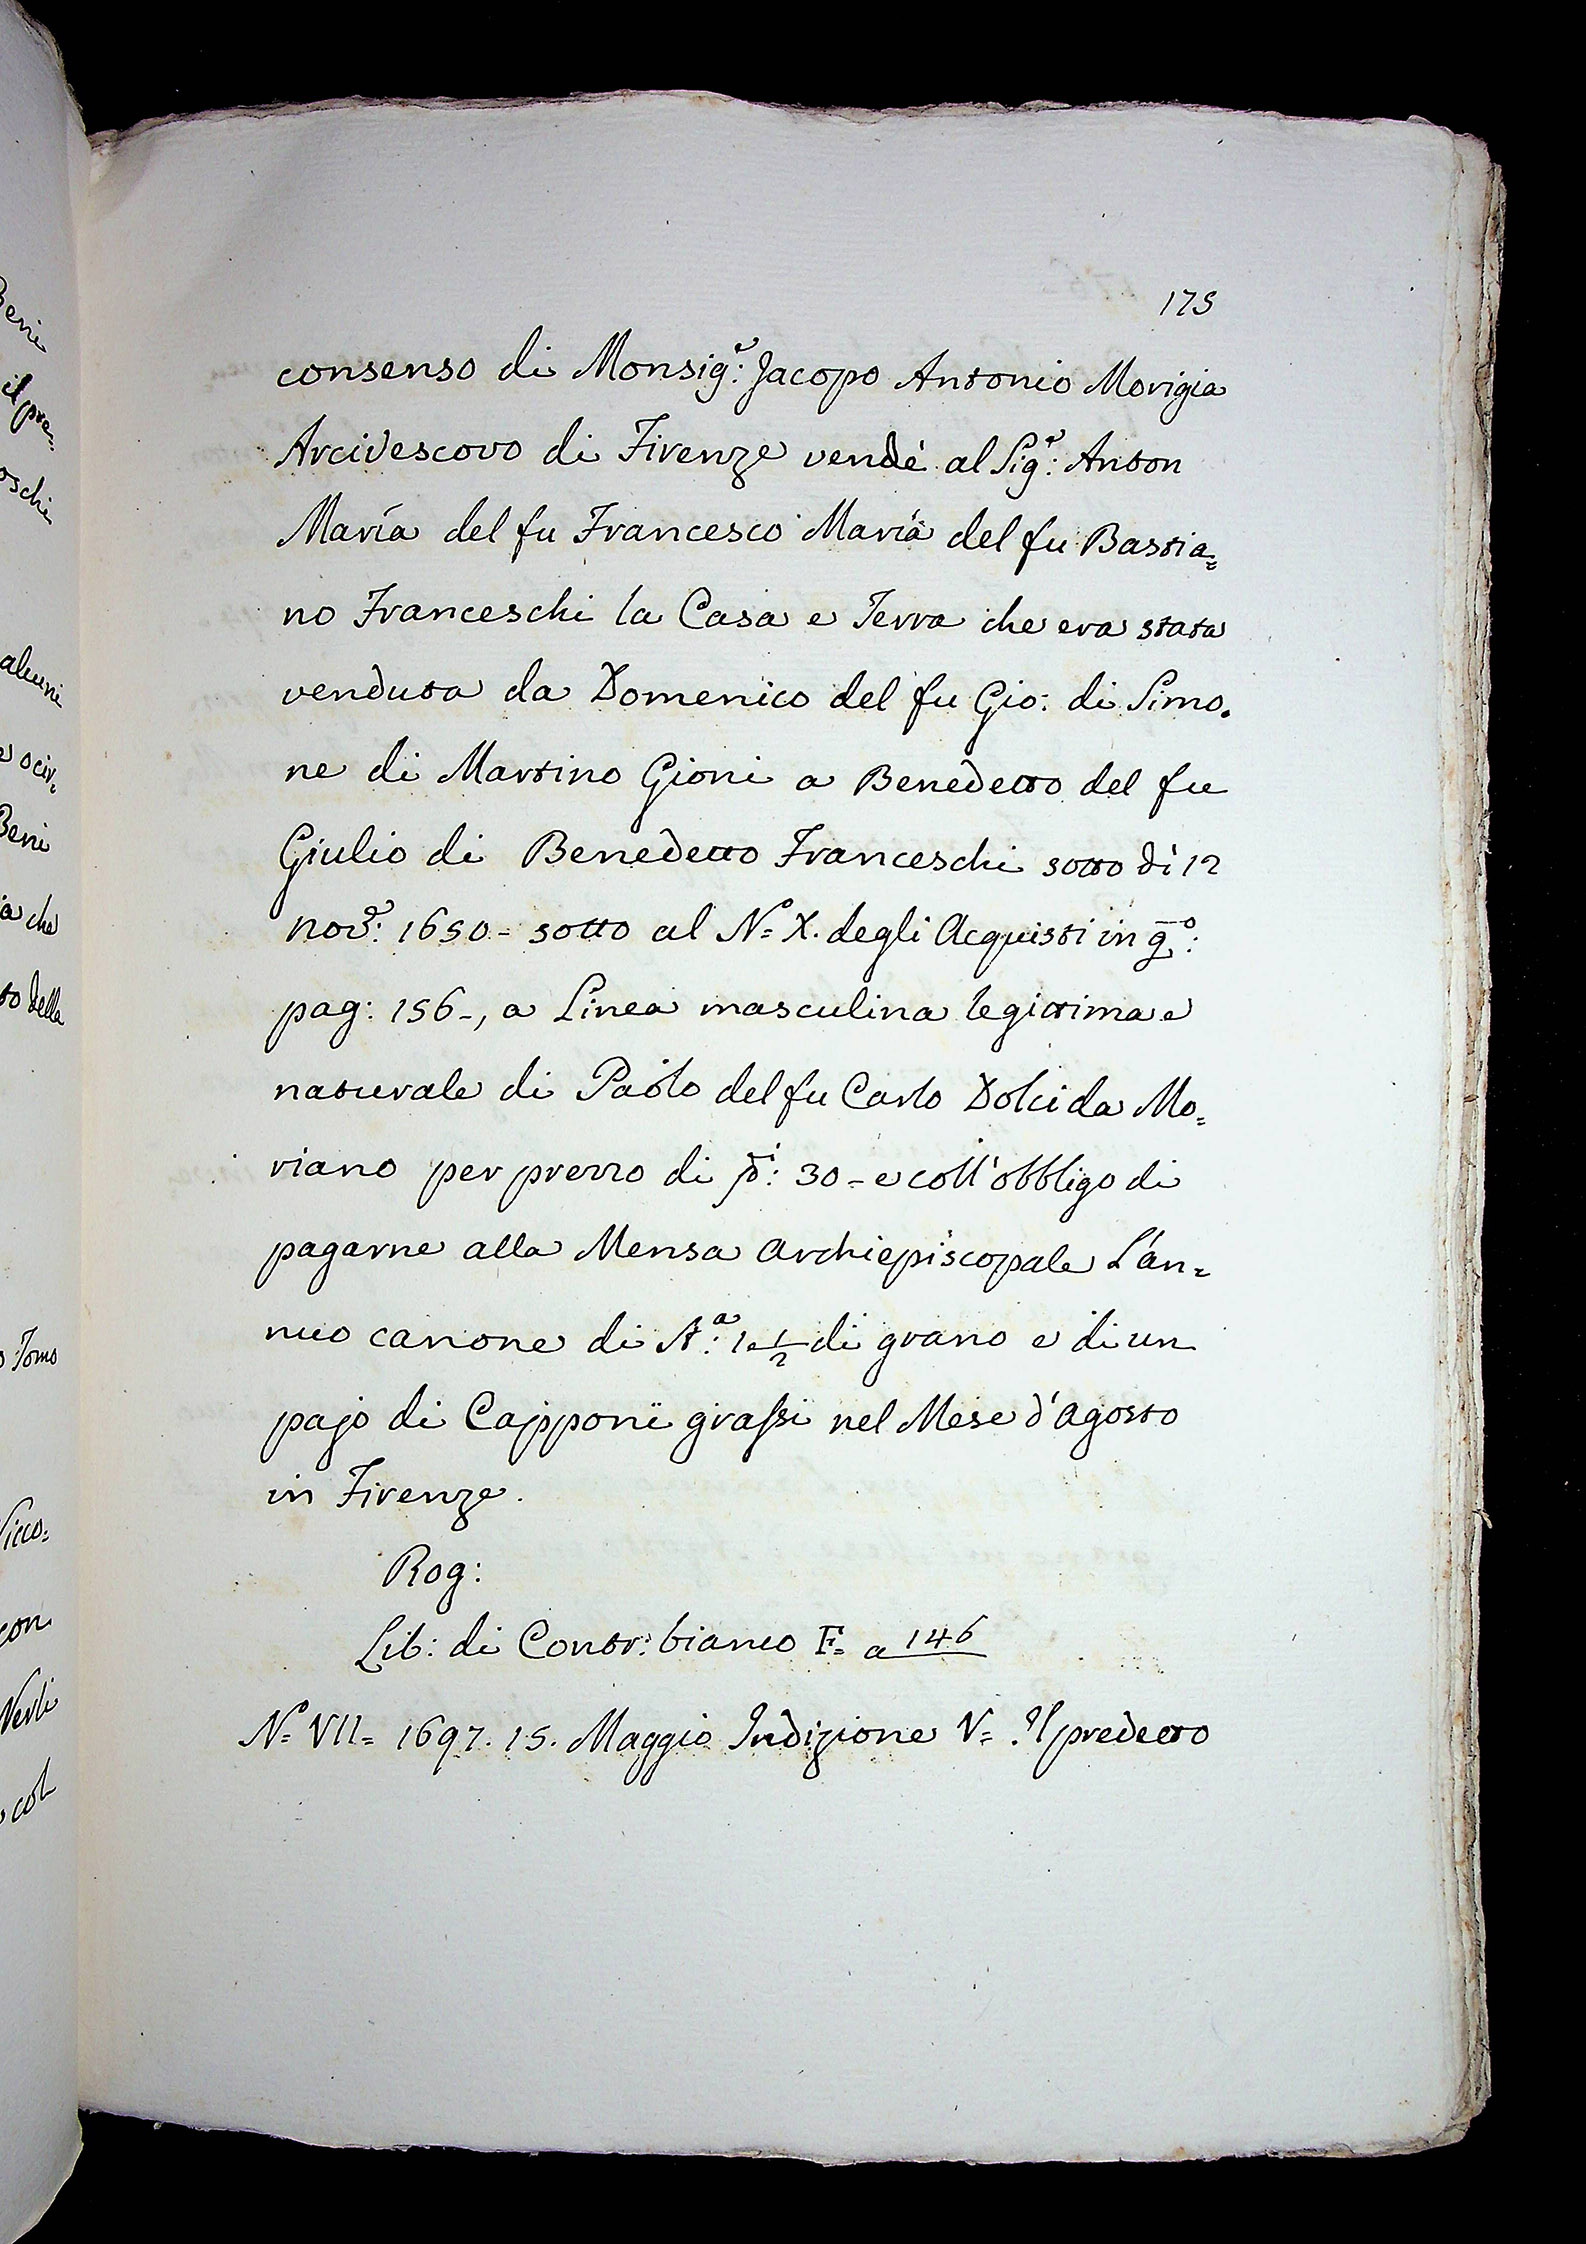 175
consenso di Monsig.e: Jacopo Antonio Morigia
Arcivescovo di Firenze vendé al Sig.e: Anton
Maria del fu Francesco Maria del fu Bastia=
no Franceschi la Casa e Terra che era stata
venduta da Domenico del fu Gio: di Simo.
ne di Martino Gioni a Benedetto del fu
Giulio di Benedetto Franceschi sotto dì 12
nov.e: 1650- sotto al N.o= X. degli Acquisti in q.o:
pag: 156-, a Linea masculina legittima e
naturale di Paolo del fu Carlo Dolci da Mo=
riano per prezzo di 30- e coll'obbligo di
pagarne alla Mensa Archiepiscopale L'an=
nuo canone di St.a: 1 1/2 di grano e di un
pajo di Capponi grassi nel Mese d'Agosto
in Firenze.
Rog:
Lib: di Contr: bianco F= a 146
N.o= VII= 1697. 15. Maggio Indizione V= Il predetto
Beni
il pre=
oschi
alcuni
Beni
a che
to della
Tomo
Nicco=
con
Nerli
col